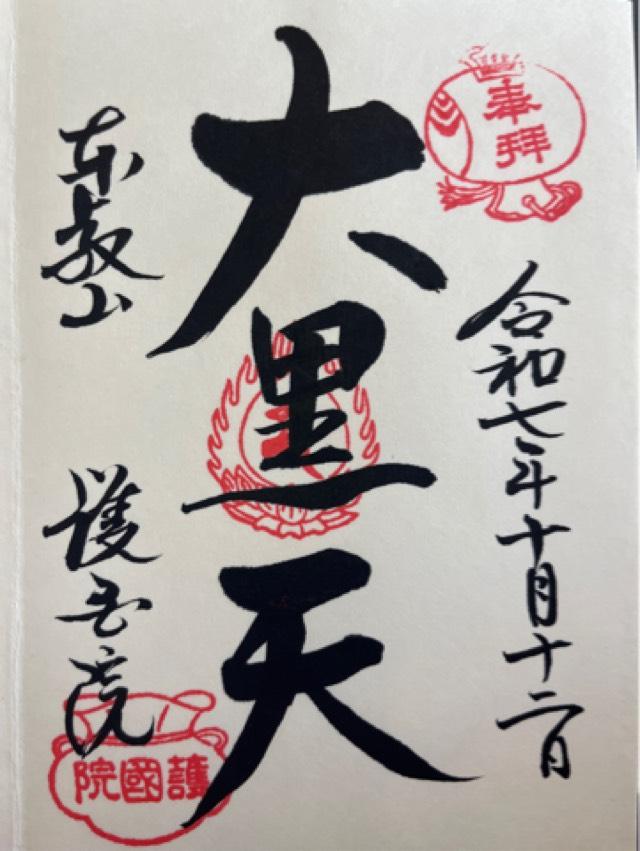 奉拝
令和七年十月十二日
大黒天
東叡山
護国院
護國院